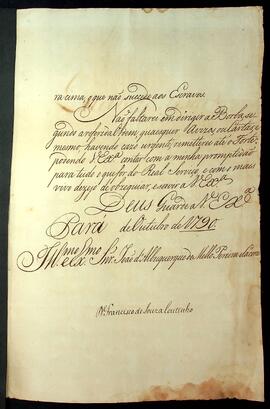 ra cima, o que não succede aos Escravos.
Não faltarei em dirigir a Borba, se-
gundo a referida Ordem, quaesquer Avizos, ou Cartas, e
mesmo havendo cazo urgente, remettêr
podendo V. Exa. contar com a minha promptidão
para tudo o que for do Real Serviço, e com o mais
vivo dezejo de obzequiar, e servir a V. Exa.
Deus Guarde a V. Exa.
Pará de Outubro de 1790
Illmo. e Exmo. Snr. João d'Albuquerque de Mello Pereira e Caceres
D. Francisco de Souza Coutinho